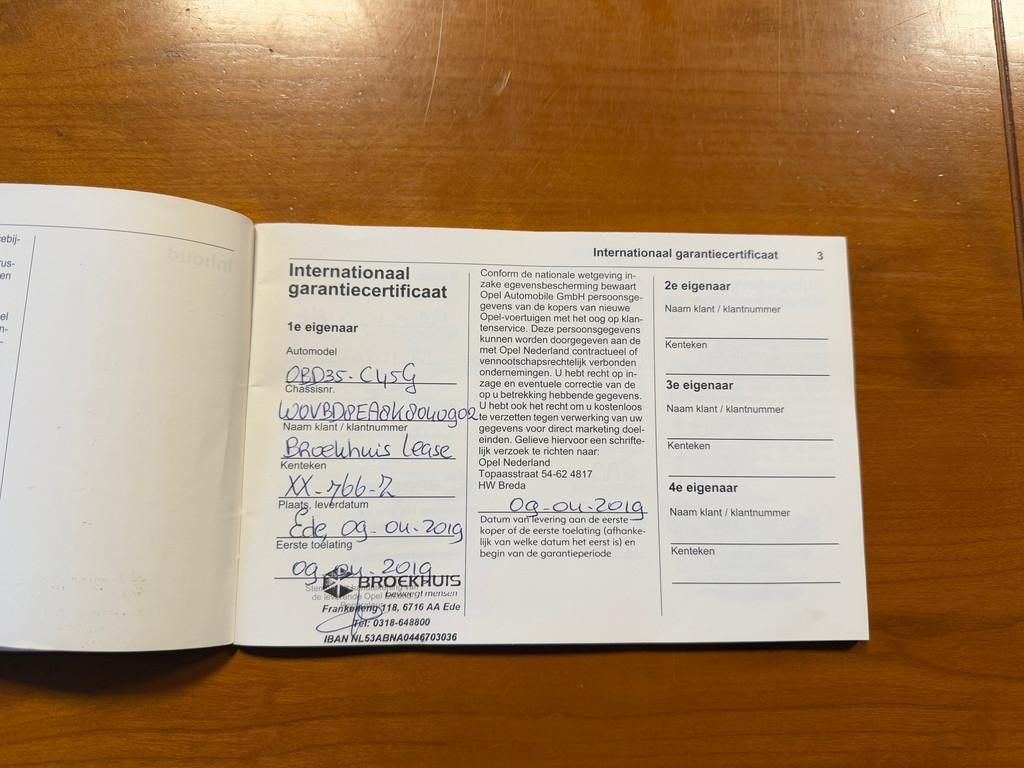 ebij-
rus-
en
el
n-
r.
Inhoud
Internationaal garantiecertificaat 3
Internationaal
garantiecertificaat
1e eigenaar
Automodel
OBD35-C45G
Chassisnr.
W0VBD8EA8K8040902
Naam klant / klantnummer
Broekhuis Lease
Kenteken
XX-766-Z
Plaats, leverdatum
Ede, 09-04-2019
Eerste toelating
09-04-2019
BROEKHUIS
beweegt mensen
Frankeneng 118, 6716 AA Ede
Tel: 0318-648800
IBAN NL53ABNA0446703036
Conform de nationale wetgeving in-
zake egevensbescherming bewaart
Opel Automobile GmbH persoonsge-
gevens van de kopers van nieuwe
Opel-voertuigen met het oog op klan-
tenservice. Deze persoonsgegevens
kunnen worden doorgegeven aan de
met Opel Nederland contractueel of
vennootschapsrechtelijk verbonden
ondernemingen. U hebt recht op in-
zage en eventuele correctie van de
op u betrekking hebbende gegevens.
U hebt ook het recht om u kosteloos
te verzetten tegen verwerking van uw
gegevens voor direct marketing doel-
einden. Gelieve hiervoor een schrifte-
lijk verzoek te richten naar:
Opel Nederland
Topaasstraat 54-62 4817
HW Breda
09-04-2019
Datum van levering aan de eerste
koper of de eerste toelating (afhanke-
lijk van welke datum het eerst is) en
begin van de garantieperiode
2e eigenaar
Naam klant / klantnummer
Kenteken
3e eigenaar
Naam klant / klantnummer
Kenteken
4e eigenaar
Naam klant / klantnummer
Kenteken